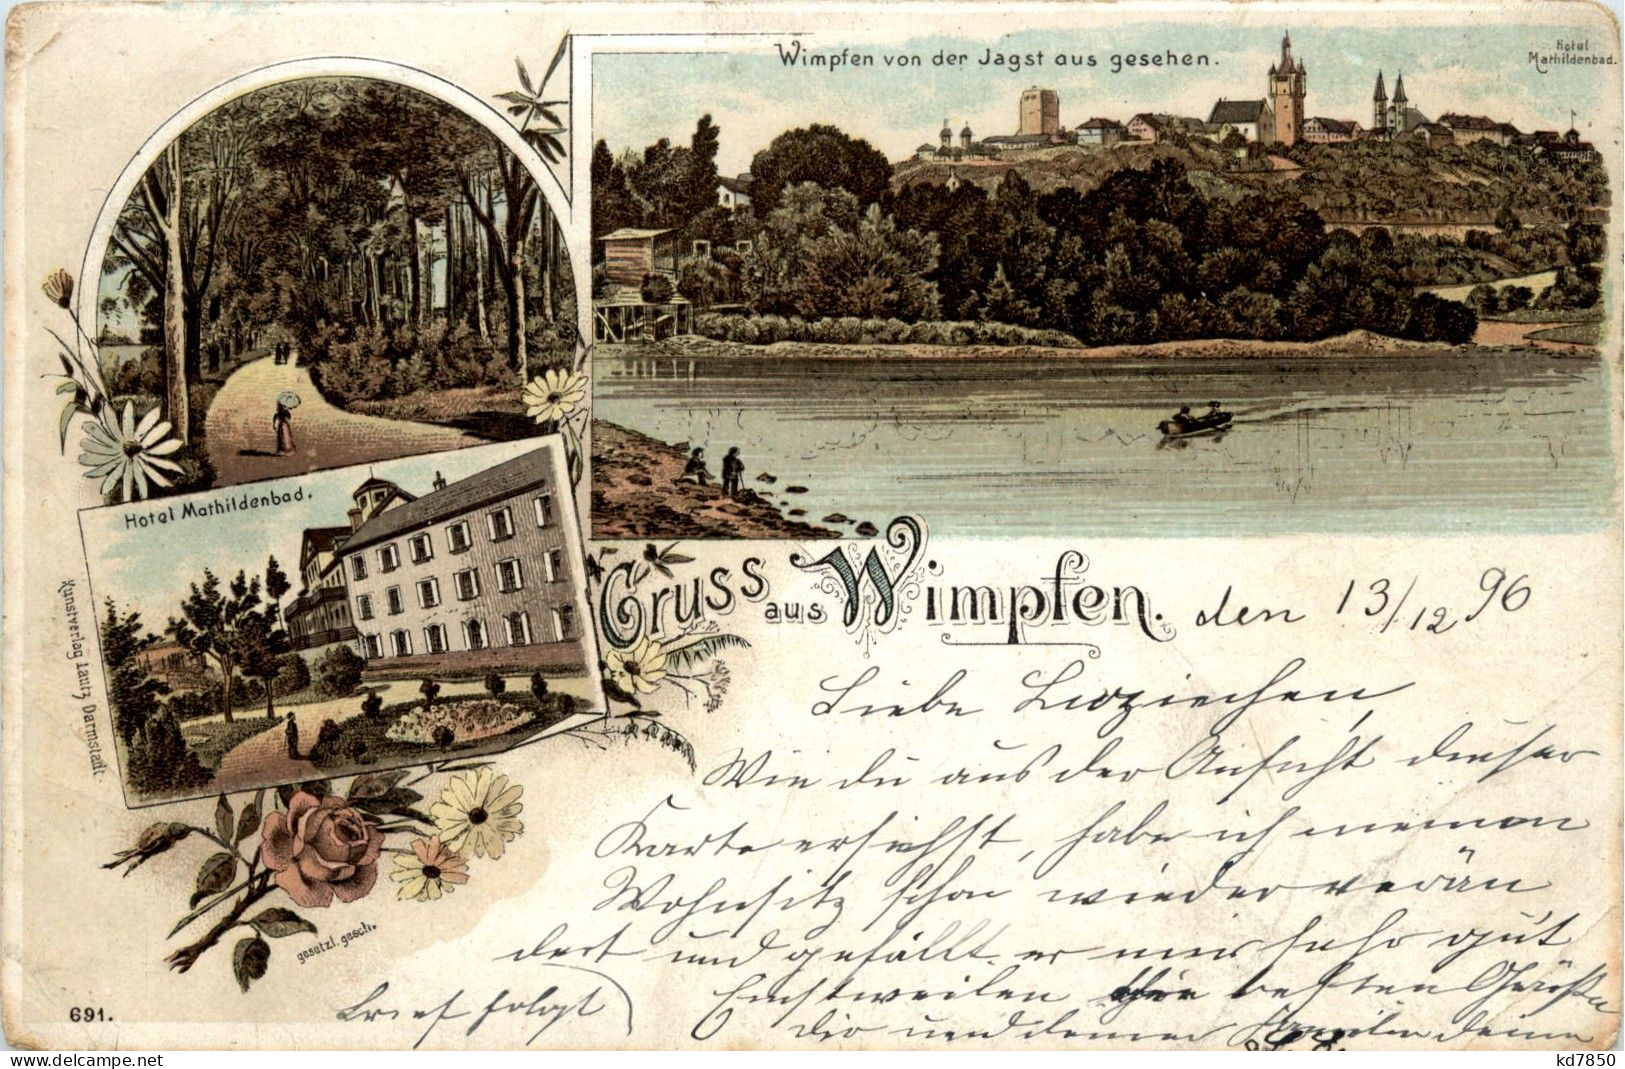 Wimpfen von der Jagst aus gesehen.
Hotel
Mathildenbad.
Hotel Mathildenbad.
Kunstverlag Lautz, Darmstadt.
Gruss aus Wimpfen. den 13/12 96
Liebe
Wie du aus der Ansicht dieser
Karte ersiehst, habe ich meinen
Wohnsitz schon wieder verän
dert und gefällt er mir sehr gut
Einstweilen besten
dir und deiner Familie deine
Brief folgt
gesetzl. gesch.
691.
kd7850
delcampe.net